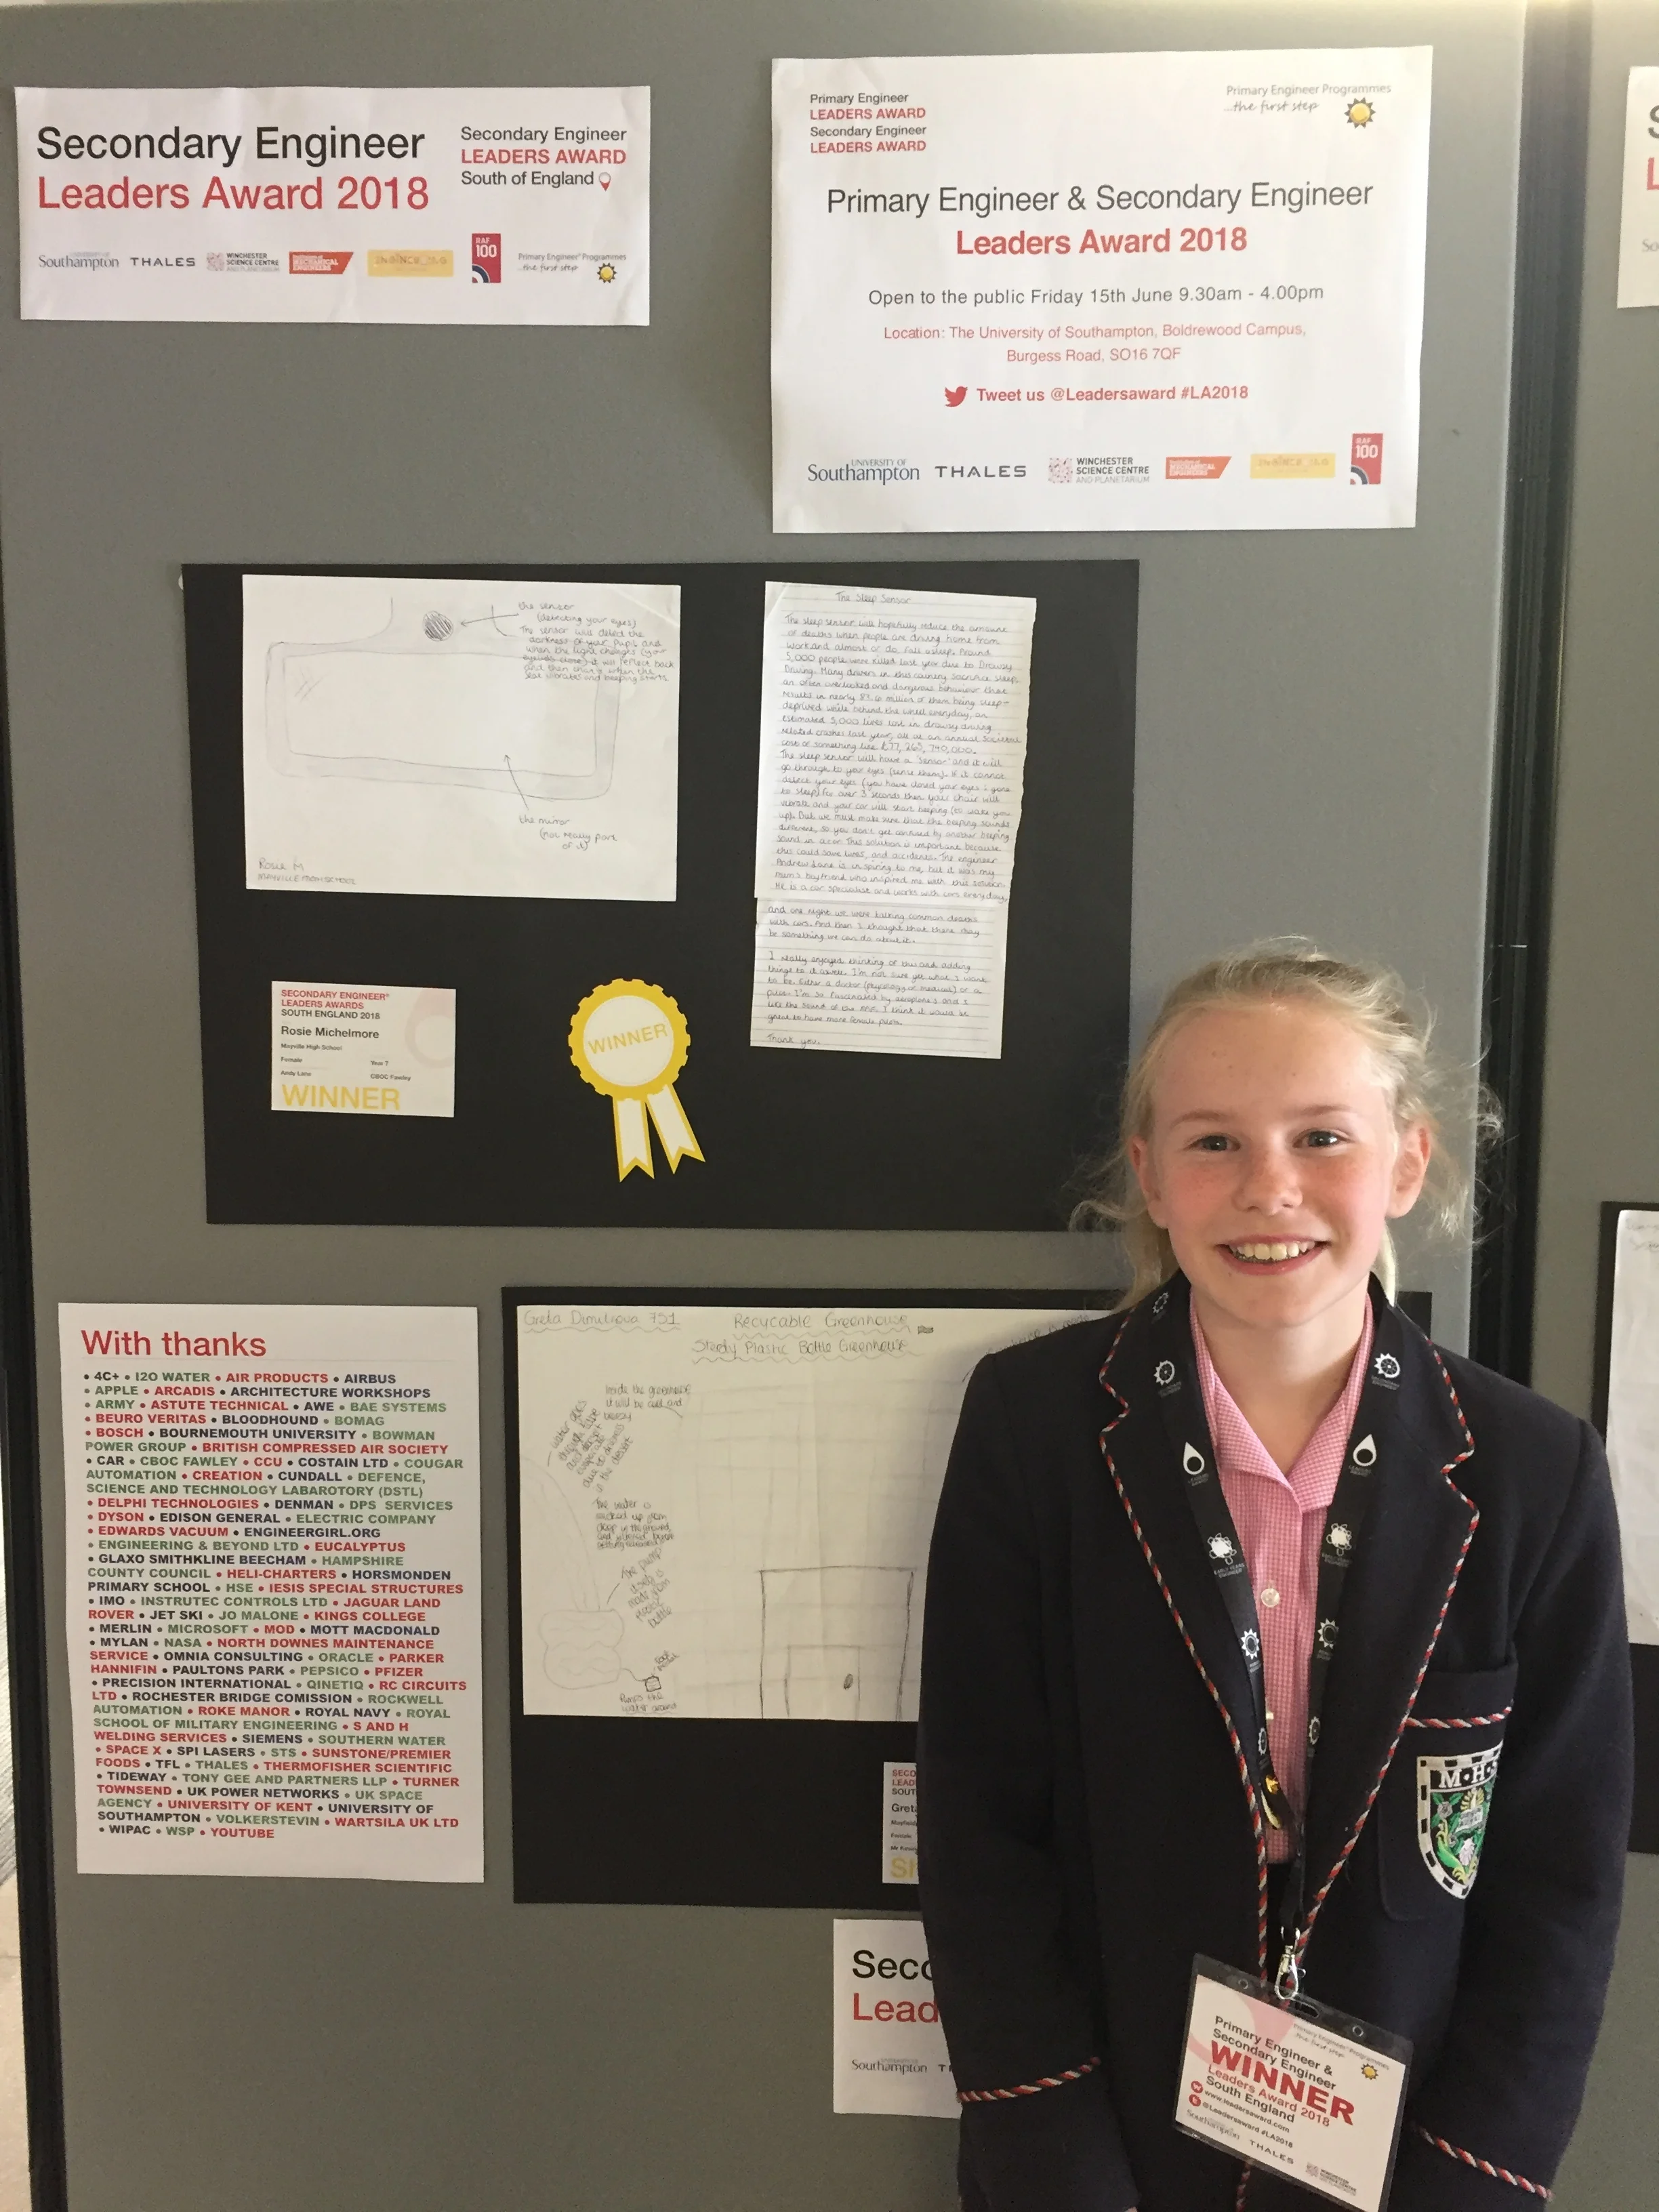 Secondary Engineer
Leaders Award 2018
Secondary Engineer
LEADERS AWARD
South of England
UNIVERSITY OF
Southampton
THALES
WINCHESTER
SCIENCE CENTRE
AND PLANETARIUM
INSTITUTION OF
MECHANICAL
ENGINEERS
RAF
100
Primary Engineer Programmes
...the first step
Primary Engineer
LEADERS AWARD
Secondary Engineer
LEADERS AWARD
Primary Engineer Programmes
...the first step
Primary Engineer & Secondary Engineer
Leaders Award 2018
Open to the public Friday 15th June 9.30am - 4.00pm
Location: The University of Southampton, Boldrewood Campus,
Burgess Road, SO16 7QF
Tweet us @Leadersaward #LA2018
UNIVERSITY OF
Southampton
THALES
WINCHESTER
SCIENCE CENTRE
AND PLANETARIUM
RAF
100
the sensor
(detecting your eyes)
The sensor will detect the
darkness of your pupils and
when the light changes (your
eyelids close) it will reflect back
and then that's when the
seat vibrates and beeping starts
the mirror
(not really part
of it)
Rosie M
The Sleep Sensor
The sleep sensor will hopefully reduce the amount
of deaths when people are driving home from
work and almost or do, fall asleep. Around
5,000 people were killed last year due to Drowsy
Driving. Many drivers in this country sacrifice sleep
an often overlooked and dangerous behaviour that
results in nearly 83.6 million of them being sleep-
deprived while behind the wheel everyday, an
estimated 5,000 lives lost in drowsy driving
related crashes last year, all at an annual societal
cost of something like £77, 265, 740, 000.
The sleep sensor will have a "sensor" and it will
go through to your eyes (sense them). If it cannot
detect your eyes (you have closed your eyes & gone
to sleep) for over 3 seconds then your chair will
vibrate and your car will start beeping (to wake you
up). But we must make sure that the beeping sounds
different, so you don't get confused by another beeping
sound in a car. This solution is important because
this could save lives, and accidents. The engineer
Andrew Lane is inspiring to me, but it was my
mum's boyfriend who inspired me with this solution.
He is a car specialist and works with cars everyday,
and one night we were talking common deaths
with cars. And then I thought that there may
be something we can do about it.
I really enjoyed thinking of this and adding
things to it aswell. I'm not sure yet what I want
to be. Either a doctor (physiology or medical) or a
pilot. I'm so fascinated by aeroplane's and I
like the sound of the RAF. I think it would be
great to have more female pilots.
Thank you.
SECONDARY ENGINEER®
LEADERS AWARDS
SOUTH ENGLAND 2018
Rosie Michelmore
Mayville High School
Female Year 7
Andy Lane CBOC Fawley
WINNER
WINNER
With thanks
• 4C+ • I2O WATER • AIR PRODUCTS • AIRBUS
• APPLE • ARCADIS • ARCHITECTURE WORKSHOPS
• ARMY • ASTUTE TECHNICAL • AWE • BAE SYSTEMS
• BEURO VERITAS • BLOODHOUND • BOMAG
• BOSCH • BOURNEMOUTH UNIVERSITY • BOWMAN
POWER GROUP • BRITISH COMPRESSED AIR SOCIETY
• CAR • CBOC FAWLEY • CCU • COSTAIN LTD • COUGAR
AUTOMATION • CREATION • CUNDALL • DEFENCE,
SCIENCE AND TECHNOLOGY LABAROTORY (DSTL)
• DELPHI TECHNOLOGIES • DENMAN • DPS SERVICES
• DYSON • EDISON GENERAL • ELECTRIC COMPANY
• EDWARDS VACUUM • ENGINEERGIRL.ORG
• ENGINEERING & BEYOND LTD • EUCALYPTUS
• GLAXO SMITHKLINE BEECHAM • HAMPSHIRE
COUNTY COUNCIL • HELI-CHARTERS • HORSMONDEN
PRIMARY SCHOOL • HSE • IESIS SPECIAL STRUCTURES
• IMO • INSTRUTEC CONTROLS LTD • JAGUAR LAND
ROVER • JET SKI • JO MALONE • KINGS COLLEGE
• MERLIN • MICROSOFT • MOD • MOTT MACDONALD
• MYLAN • NASA • NORTH DOWNES MAINTENANCE
SERVICE • OMNIA CONSULTING • ORACLE • PARKER
HANNIFIN • PAULTONS PARK • PEPSICO • PFIZER
• PRECISION INTERNATIONAL • QINETIQ • RC CIRCUITS
LTD • ROCHESTER BRIDGE COMISSION • ROCKWELL
AUTOMATION • ROKE MANOR • ROYAL NAVY • ROYAL
SCHOOL OF MILITARY ENGINEERING • S AND H
WELDING SERVICES • SIEMENS • SOUTHERN WATER
• SPACE X • SPI LASERS • STS • SUNSTONE/PREMIER
FOODS • TFL • THALES • THERMOFISHER SCIENTIFIC
• TIDEWAY • TONY GEE AND PARTNERS LLP • TURNER
TOWNSEND • UK POWER NETWORKS • UK SPACE
AGENCY • UNIVERSITY OF KENT • UNIVERSITY OF
SOUTHAMPTON • VOLKERSTEVIN • WARTSILA UK LTD
• WIPAC • WSP • YOUTUBE
Greta Dimitrova 7S1
Recycable Greenhouse
Steedy Plastic Bottle Greenhouse
Inside the greenhouse
it will be cold and
breezy
The water is
sucked up from
deep in the ground,
The pump
itself is
made from
plastic
bottle
Pumps the
water around
SECO
LEAD
SOUT
Greta
Female
Sh
Seco
Lead
Southampton
M·H·S
Primary Engineer &
Secondary Engineer
WINNER
Leaders Award 2018
South England
www.leadersaward.com
@Leadersaward #LA2018
Southampton
THALES
WINCHESTER
SCIENCE CENTRE
Primary Engineer Programmes
...the first step